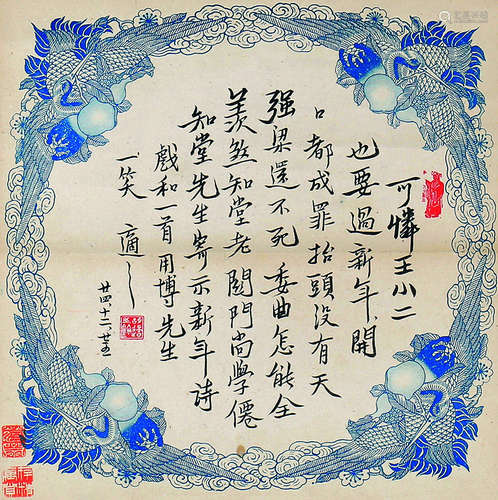 可憐王小二
也要過新年開
口都成罪抬頭沒有天
强梁還不死委曲怎能全
羨煞知堂老關門尚學僊
知堂先生寄示新年詩
戲和一首用博先生
一笑 適之
廿四、十二、廿五